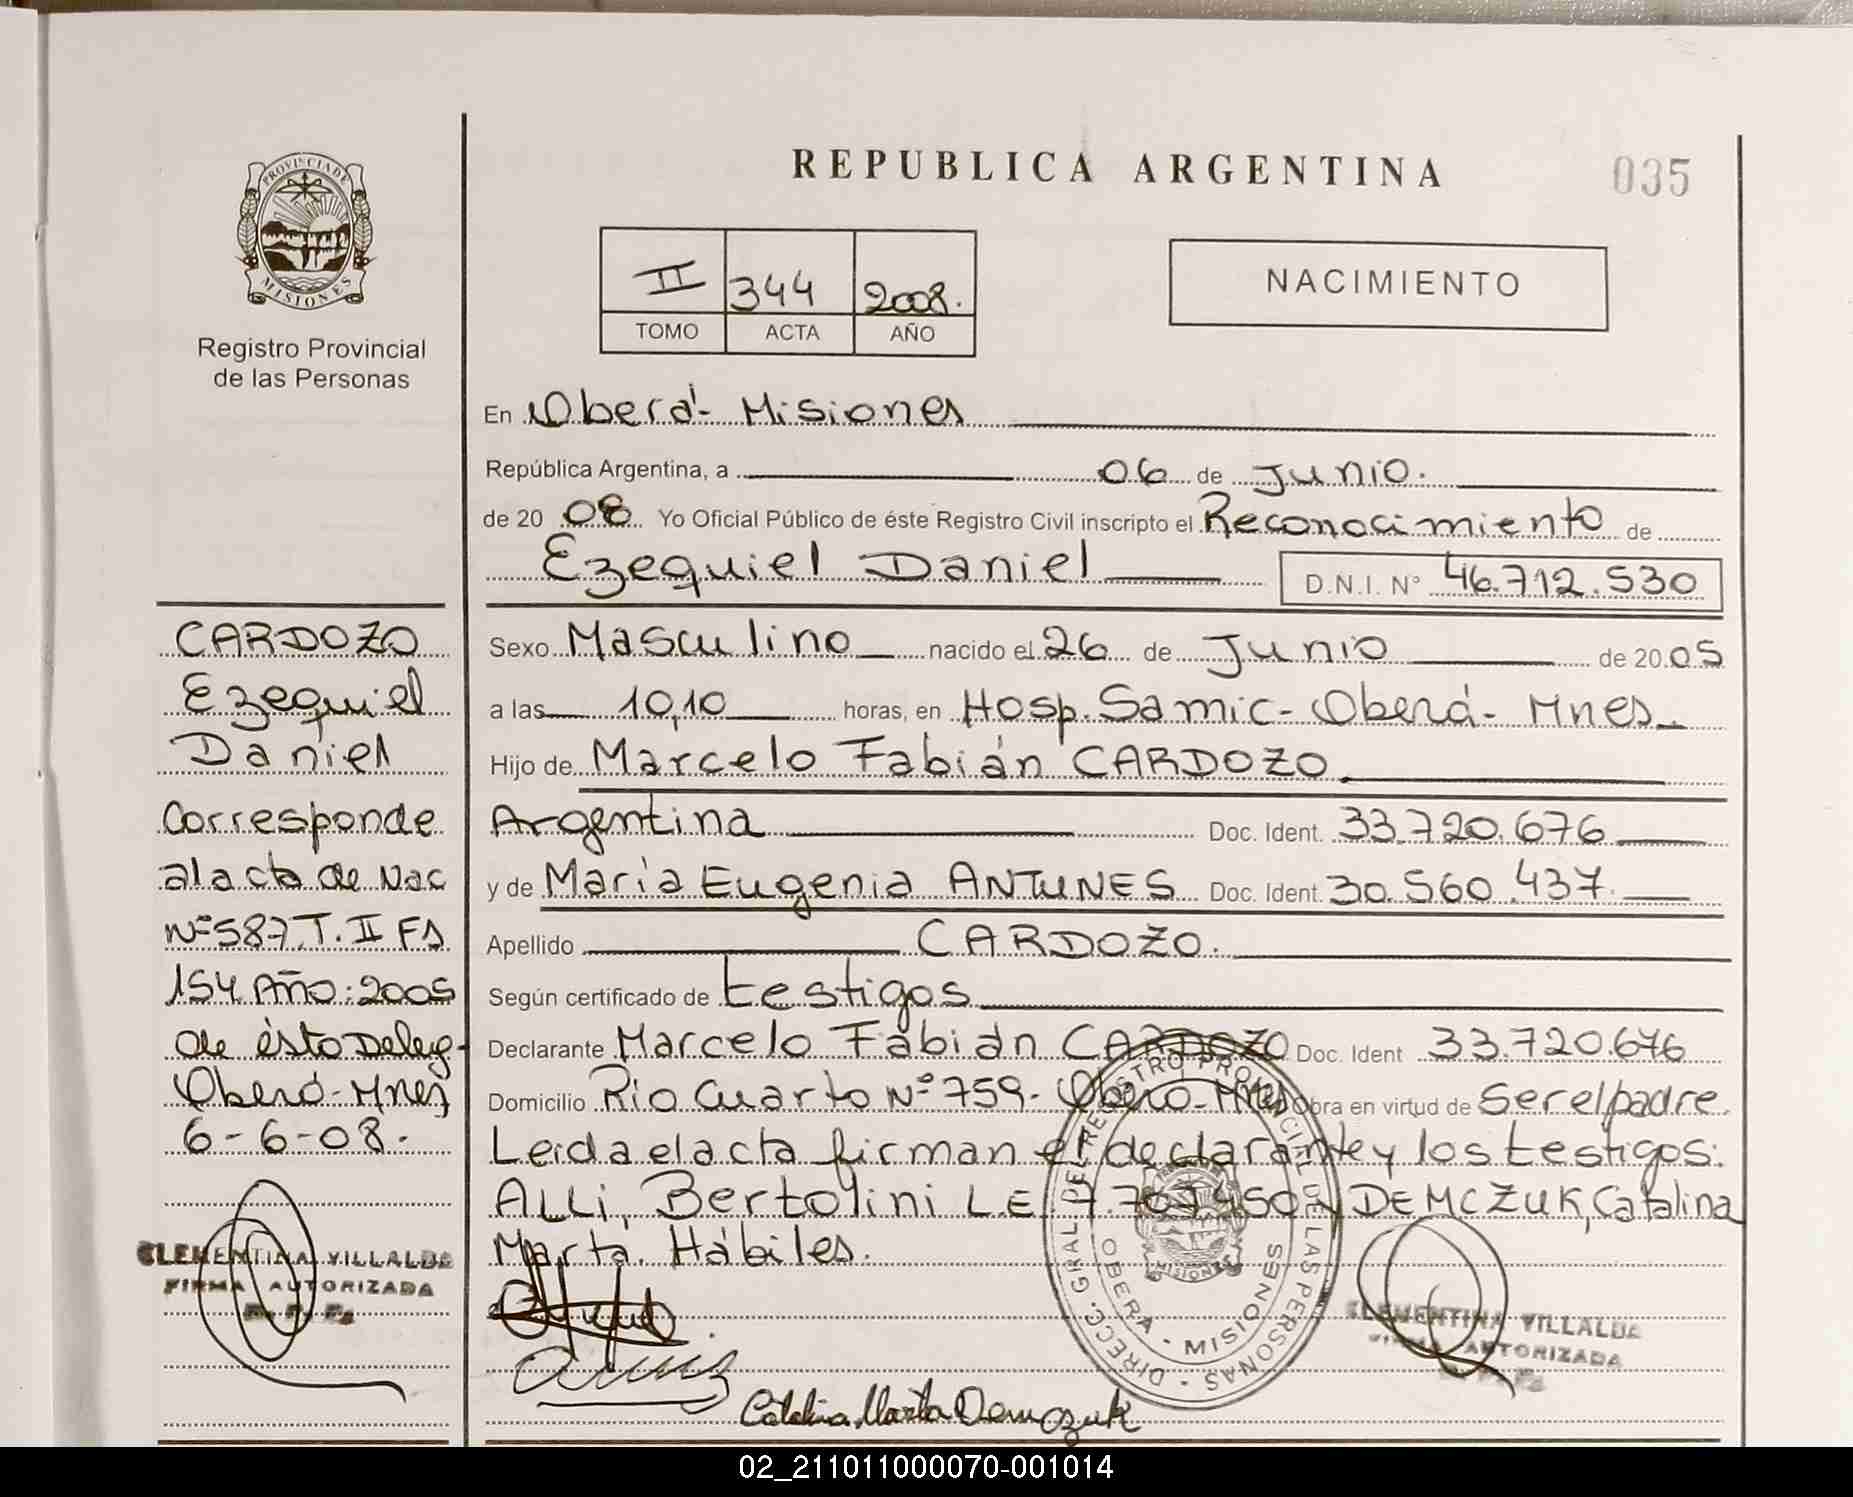 PROVINCIA DE
MISIONES
Registro Provincial
de las Personas
CARDOZO
Ezequiel
Daniel
Corresponde
al acta de Nac
Nº 587 T. II Fs
154 Año: 2005
de ésta Deleg.
Oberá-Mnes
6-6-08.
CLEMENTINA VILLALBA
FIRMA AUTORIZADA
REPUBLICA ARGENTINA
035
II 344 2008.
TOMO ACTA AÑO
NACIMIENTO
En Oberá- Misiones
República Argentina, a 06 de Junio.
de 20 08 Yo Oficial Público de éste Registro Civil inscripto el Reconocimiento de
Ezequiel Daniel D.N.I. Nº 46.712.530
Sexo Masculino nacido el 26 de Junio de 20 05
a las 10,10 horas, en Hosp. Samic- Oberá- Mnes
Hijo de Marcelo Fabián CARDOZO
Argentina Doc. Ident. 33.720.676
y de María Eugenia ANTUNES Doc. Ident. 30.560.437.
Apellido CARDOZO.
Según certificado de testigos
Declarante Marcelo Fabián CARDOZO Doc. Ident 33.720.676
Domicilio Rio Cuarto Nº 759- Oberá-Mnes Obra en virtud de ser el padre.
Leida el acta firman el declarante y los testigos:
ALLI, Bertolini LE DEMCZUK, Catalina
Marta. Hábiles.
DIRECC. GRAL DEL REGISTRO PROVINCIAL DE LAS PERSONAS
OBERA - MISIONES
MISIONES
CLEMENTINA VILLALBA
FIRMA AUTORIZADA
Catalina Marta Demczuk
02_211011000070-001014